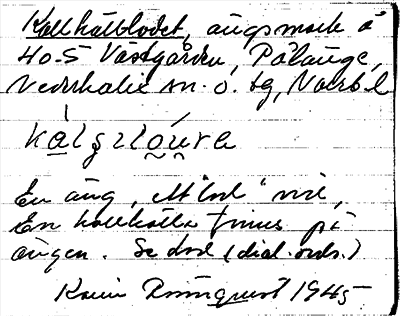 Kallhålslodet, ängsmark å
40.5 Västgården, Pålänge,
Nederkalix sn. o. tg, Norrb. l
En äng, ett lod
En kallkälla finns på
ängen. Se lod (dial. ordb.)
Karin Rönnquist 1945